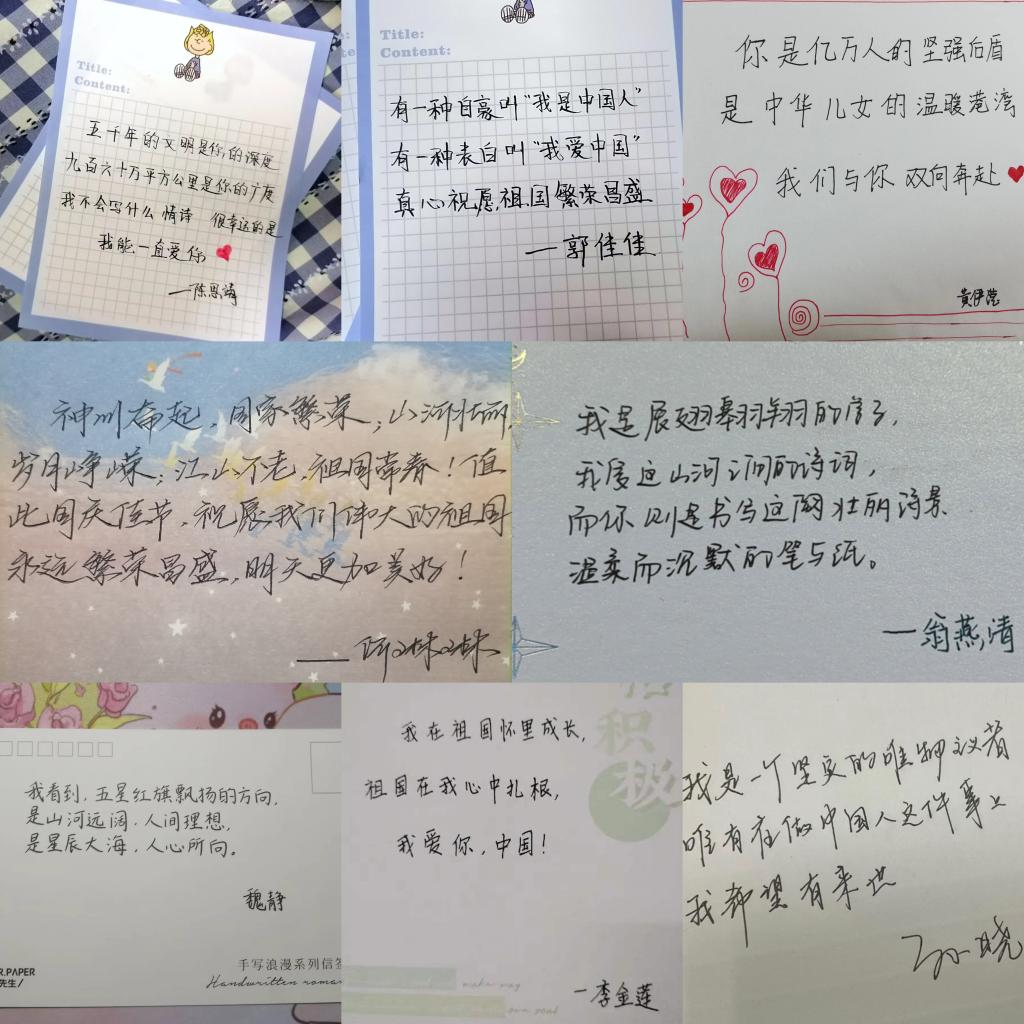 Title:
Content:
五千年的文明是你的深度
九百六十万平方公里是你的广度
我不会写什么情诗 很幸运的是
我能一直爱你
—陈思
Title:
Content:
有一种自豪叫“我是中国人”
有一种表白叫“我爱中国”
真心祝愿祖国繁荣昌盛
—郭佳佳
你是亿万人的坚强后盾
是中华儿女的温暖港湾
我们与你双向奔赴
黄伊滢
神州奋起,国家繁荣;山河壮丽,
岁月峥嵘;江山不老,祖国常春!值
此国庆佳节,祝愿我们伟大的祖国
永远繁荣昌盛,明天更加美好!
——阿琳琳
我是展翅翱翔的
我度过山河间的诗词,
而你则是书写这阕壮丽诗景
温柔而沉默的笔与纸。
—翁燕清
我看到,五星红旗飘扬的方向,
是山河远阔,人间理想,
是星辰大海,人心所向。
魏静
R.PAPER
先生/
手写浪漫系列信签
Handwritten roman
积
极
我在祖国怀里成长,
祖国在我心中扎根,
我爱你,中国!
—李金莲
make way
own soul
我是一个坚实的唯物议者
唯有在做中国人这件事上
我都望有来世
孙晓